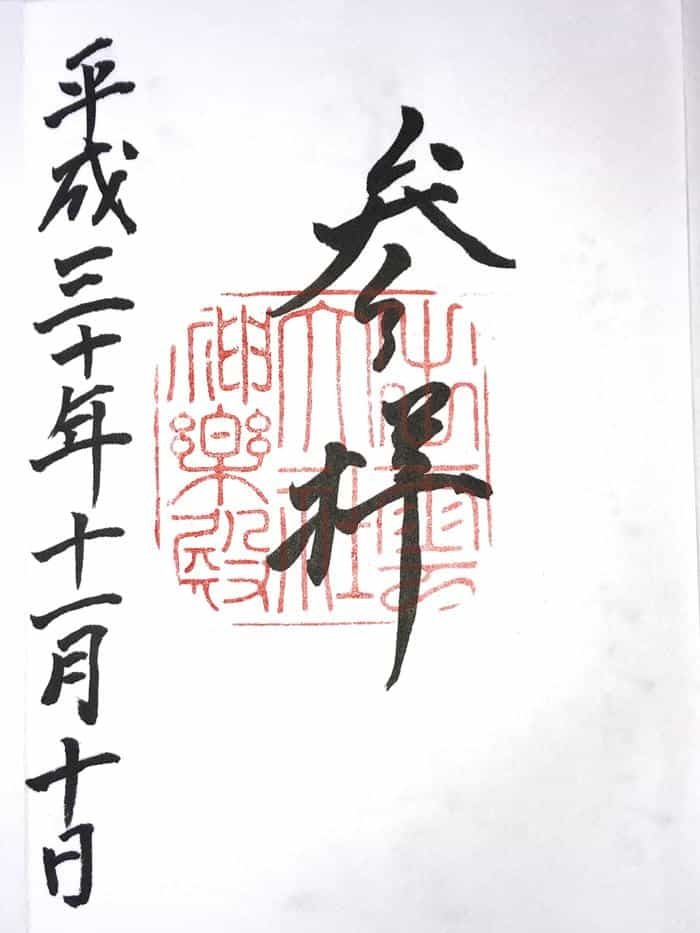 参拝
出雲
大社
神楽殿
平成三十年十一月十日